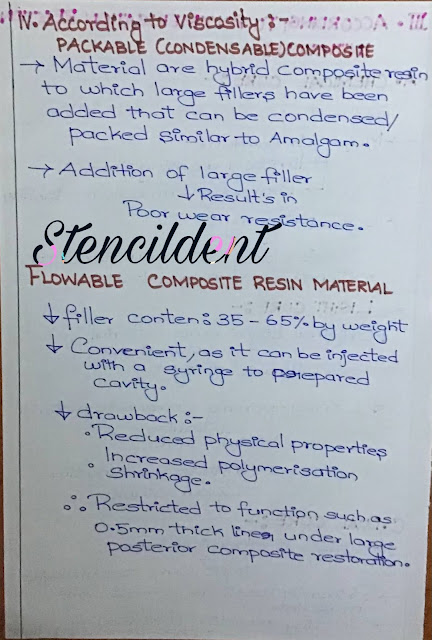 IV. According to Viscosity :-
PACKABLE (CONDENSABLE) COMPOSITE
→ Material are hybrid composite resin
to which large fillers have been
added that can be condensed/
packed similar to Amalgam.
→ Addition of large filler
↓ Result's in
Poor wear resistance.
Stencildent
FLOWABLE COMPOSITE RESIN MATERIAL
↓ filler conten: 35 - 65% by weight
↓ Convenient, as it can be injected
with a syringe to prepared
cavity.
↓ drawback :-
• Reduced physical properties
• Increased polymerisation
shrinkage.
∴ Restricted to function such as
0.5mm thick liner under large
posterior composite restoration.